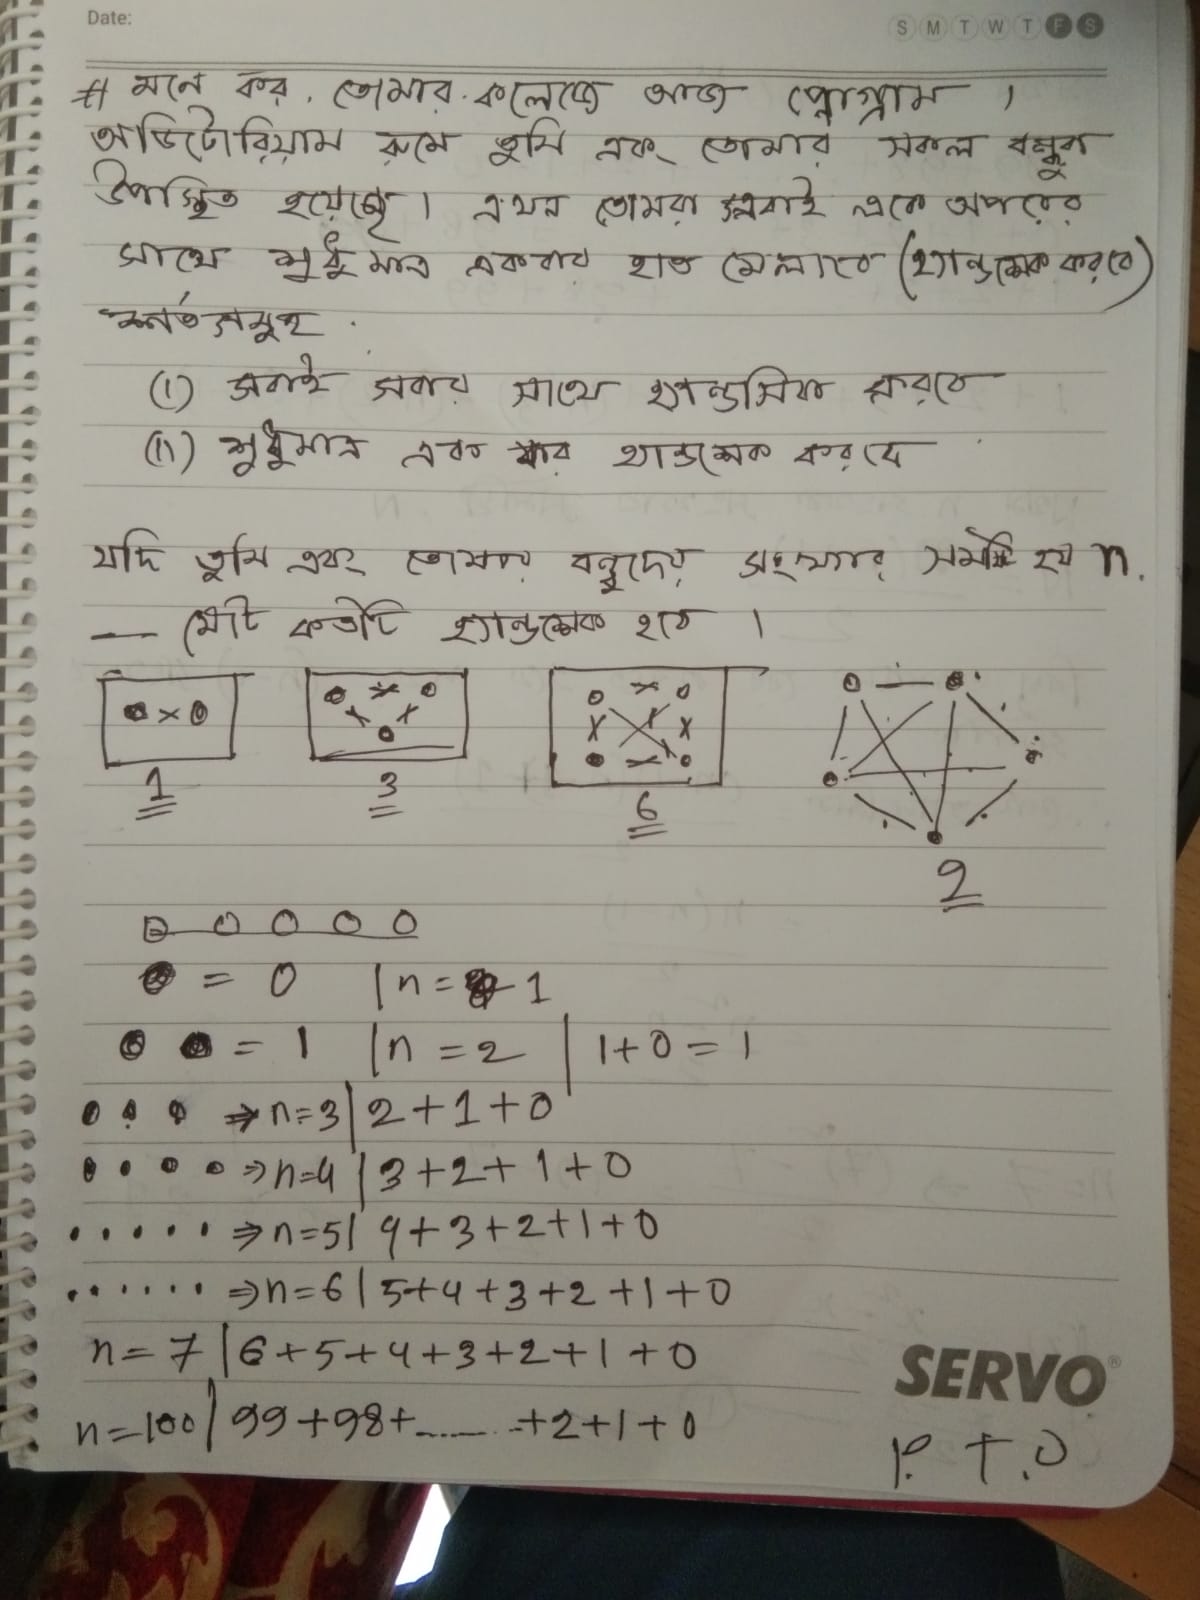 Date:
S M T W T F S
# মনে কর, তোমার কলেজে আজ প্রোগ্রাম ।
অডিটোরিয়াম রুমে তুমি এবং তোমার সকল বন্ধুরা
উপস্থিত হয়েছে। এখন তোমরা সবাই একে অপরের
সাথে শুধুমাত্র একবার হাত মেলাবে (হ্যান্ডশেক করবে)
শর্তসমূহ
(i) সবাই সবার সাথে হ্যান্ডসেক করবে
(ii) শুধুমাত্র এক বার হ্যান্ডশেক করবে
যদি তুমি এবং তোমার বন্ধুদের সংখ্যার সমষ্টি হয় n.
— মোট কতটি হ্যান্ডশেক হবে ।
1 3 6 ?
= 0 | n = 1
= 1 | n = 2 | 1+0 = 1
⇒ n=3 | 2+1+0
⇒ n=4 | 3+2+1+0
⇒ n=5 | 4+3+2+1+0
⇒ n=6 | 5+4+3+2+1+0
n = 7 | 6+5+4+3+2+1+0
n=100 | 99+98+........+2+1+0
SERVO®
P. T.O